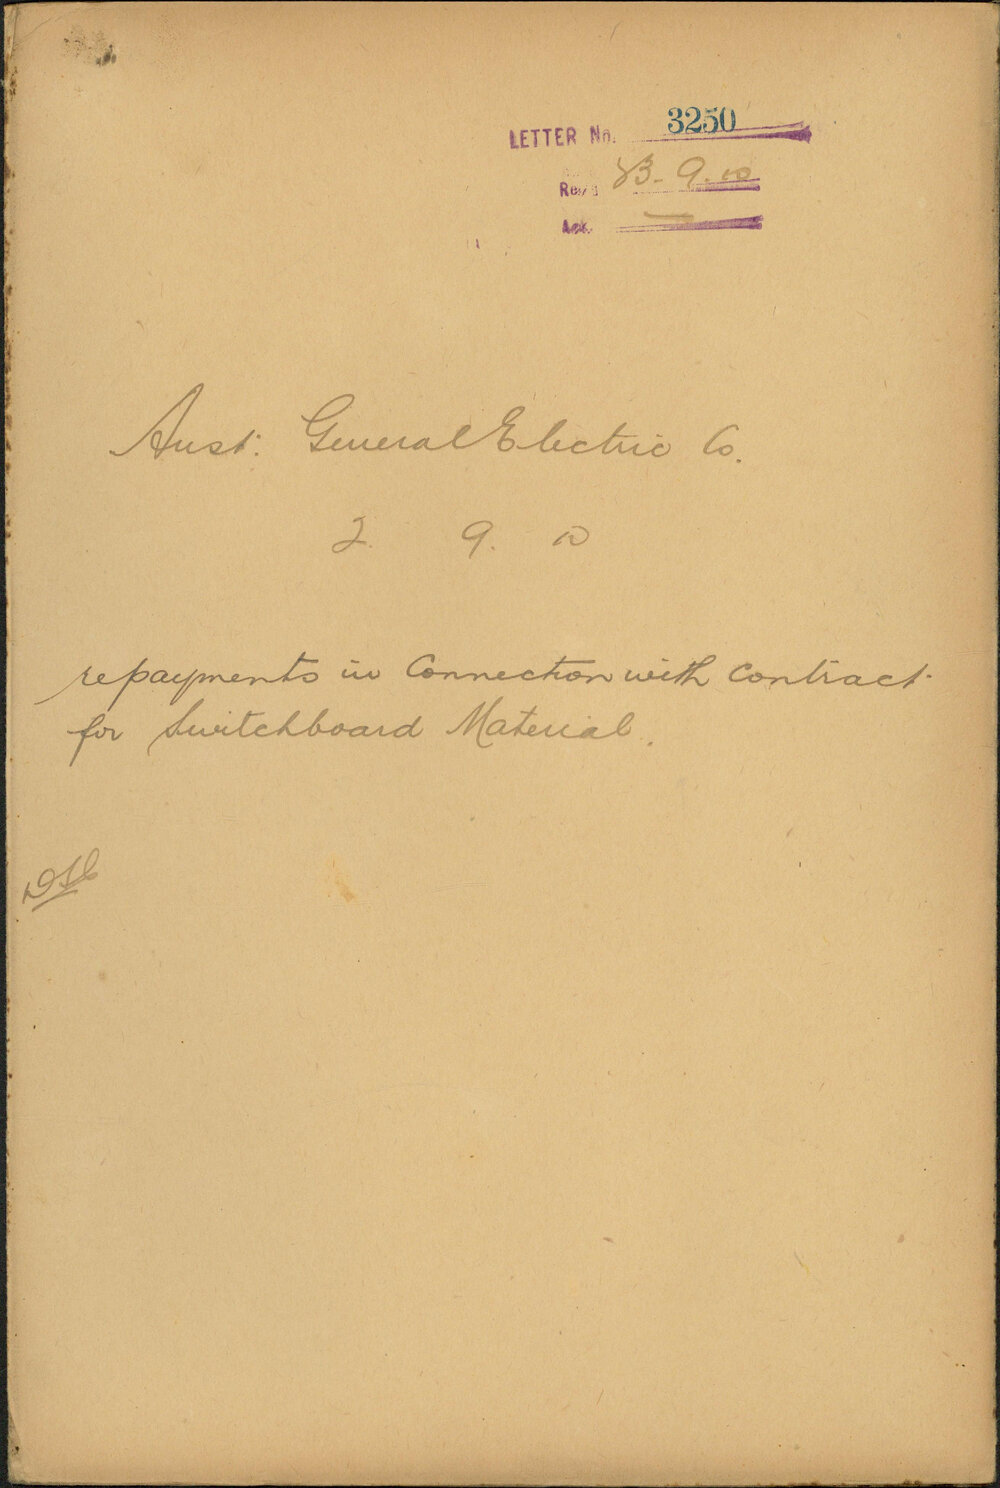 LETTER No. 3250
Rec'd 9.10
Ack. —
Aust. General Electric Co.
2. 9. 10
repayments in Connection with Contract
for Switchboard Material.